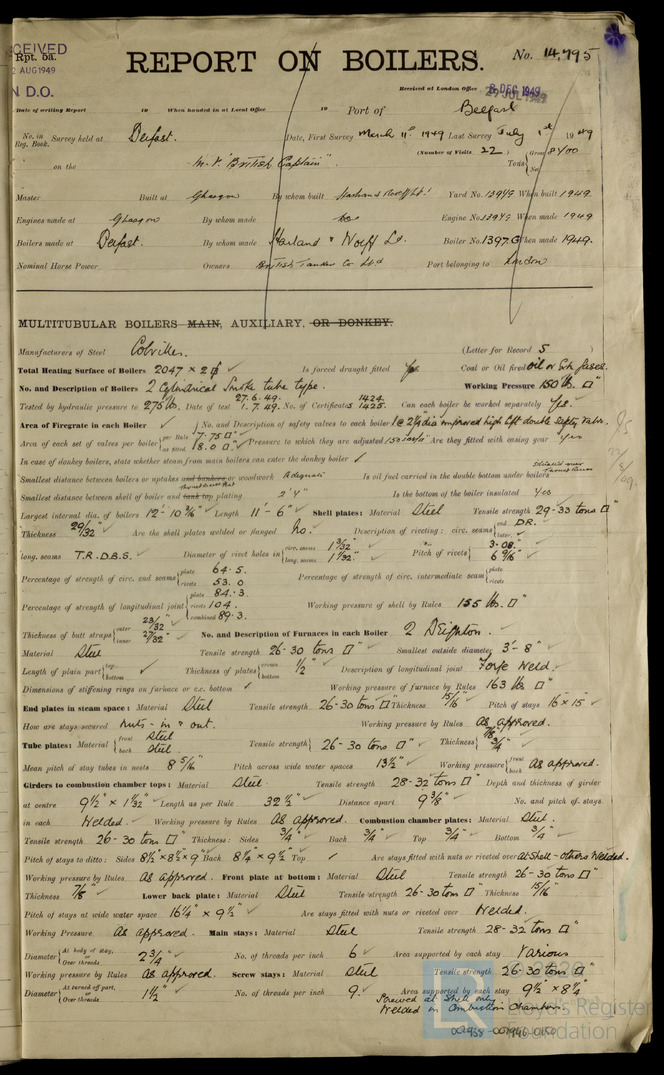 CEIVED
Rpt. 5a.
2 AUG 1949
N D.O.
REPORT ON BOILERS.
No. 14,795
Received at London Office
8 DEC 1949
Date of writing Report 19 When handed in at Local Office 19 Port of Belfast
No. in Reg. Book. Survey held at Belfast. Date, First Survey March 11th 1949 Last Survey July 1st 1949
(Number of Visits 22) Tons Gross 8400 Net
on the M.V. "British Captain".
Master Built at Glasgow By whom built Harland & Wolff Ltd. Yard No. 1394G When built 1949.
Engines made at Glasgow By whom made do. Engine No. 1394G When made 1949
Boilers made at Belfast. By whom made Harland & Wolff Ld. Boiler No. 1397.G When made 1949.
Nominal Horse Power Owners British Tanker Co Ltd Port belonging to London
MULTITUBULAR BOILERS MAIN, AUXILIARY, OR DONKEY.
Manufacturers of Steel Colvilles. (Letter for Record S )
Total Heating Surface of Boilers 2047 × 2 Is forced draught fitted Yes Coal or Oil fired oil or Exh. gases.
No. and Description of Boilers 2 Cylindrical Smoke tube type. Working Pressure 150 lbs. □"
Tested by hydraulic pressure to 275 lbs. Date of test 27.6.49. 1.7.49. No. of Certificates 1424. 1425. Can each boiler be worked separately Yes.
Area of Firegrate in each Boiler ✓ No. and Description of safety valves to each boiler 1 @ 2½" dia improved high lift double safety valves.
Area of each set of valves per boiler per Rule 7.75 □" as fitted 8.0 □" Pressure to which they are adjusted 150 Are they fitted with easing gear Yes
In case of donkey boilers, state whether steam from main boilers can enter the donkey boiler ✓
Smallest distance between boilers or uptakes and bunkers or woodwork Adequate Is oil fuel carried in the double bottom under boilers
Smallest distance between shell of boiler and tank top plating 2' 4" Is the bottom of the boiler insulated Yes
Largest internal dia. of boilers 12'-10 3/16" Length 11'-6" Shell plates: Material Steel Tensile strength 29-33 tons □"
Thickness 29/32" Are the shell plates welded or flanged No. Description of riveting: circ. seams end D.R. inter.
long. seams T.R.D.B.S. Diameter of rivet holes in circ. seams 1 3/32" long. seams 1 1/32" Pitch of rivets 3.08" 6 9/16"
Percentage of strength of circ. end seams plate 64.5. rivets 53.0 Percentage of strength of circ. intermediate seam plate rivets
Percentage of strength of longitudinal joint plate 84.3. rivets 104. combined 89.3. Working pressure of shell by Rules 155 lbs. □"
Thickness of butt straps outer 23/32" inner 27/32" No. and Description of Furnaces in each Boiler 2 Deighton.
Material Steel Tensile strength 26-30 tons □" Smallest outside diameter 3'-8"
Length of plain part top bottom Thickness of plates crown bottom 1/2" Description of longitudinal joint Forge Weld.
Dimensions of stiffening rings on furnace or c.c. bottom ✓ Working pressure of furnace by Rules 163 lbs □"
End plates in steam space: Material Steel Tensile strength 26-30 tons □" Thickness 15/16" Pitch of stays 16" × 15"
How are stays secured nuts - in & out. Working pressure by Rules As approved.
Tube plates: Material front Steel back Steel. Tensile strength 26-30 tons □" Thickness 7/8" 3/4"
Mean pitch of stay tubes in nests 8 5/16" Pitch across wide water spaces 13½" Working pressure front back As approved.
Girders to combustion chamber tops: Material Steel. Tensile strength 28-32 tons □" Depth and thickness of girder
at centre 9½" × 1 1/32" Length as per Rule 32½" Distance apart 9 3/8" No. and pitch of stays
in each Welded. Working pressure by Rules As approved. Combustion chamber plates: Material Steel.
Tensile strength 26-30 tons □" Thickness: Sides 3/4" Back 3/4" Top 3/4" Bottom 3/4"
Pitch of stays to ditto: Sides 8½" × 8½" × 9" Back 8¼" × 9½" Top ✓ Are stays fitted with nuts or riveted over At Shell - others Welded.
Working pressure by Rules As approved. Front plate at bottom: Material Steel Tensile strength 26-30 tons □"
Thickness 7/8" Lower back plate: Material Steel Tensile strength 26-30 tons □" Thickness 15/16"
Pitch of stays at wide water space 16¼" × 9½" Are stays fitted with nuts or riveted over Welded.
Working Pressure As approved. Main stays: Material Steel Tensile strength 28-32 tons □"
Diameter At body of stay, or Over threads 2¾" No. of threads per inch 6 Area supported by each stay Various
Working pressure by Rules As approved. Screw stays: Material Steel Tensile strength 26-30 tons □"
Diameter At turned off part, or Over threads 1½" No. of threads per inch 9. Area supported by each stay 9½" × 8¼"
Screwed at Shell only
Welded in Combustion Chambers
© 2020
Lloyd's Register
Foundation